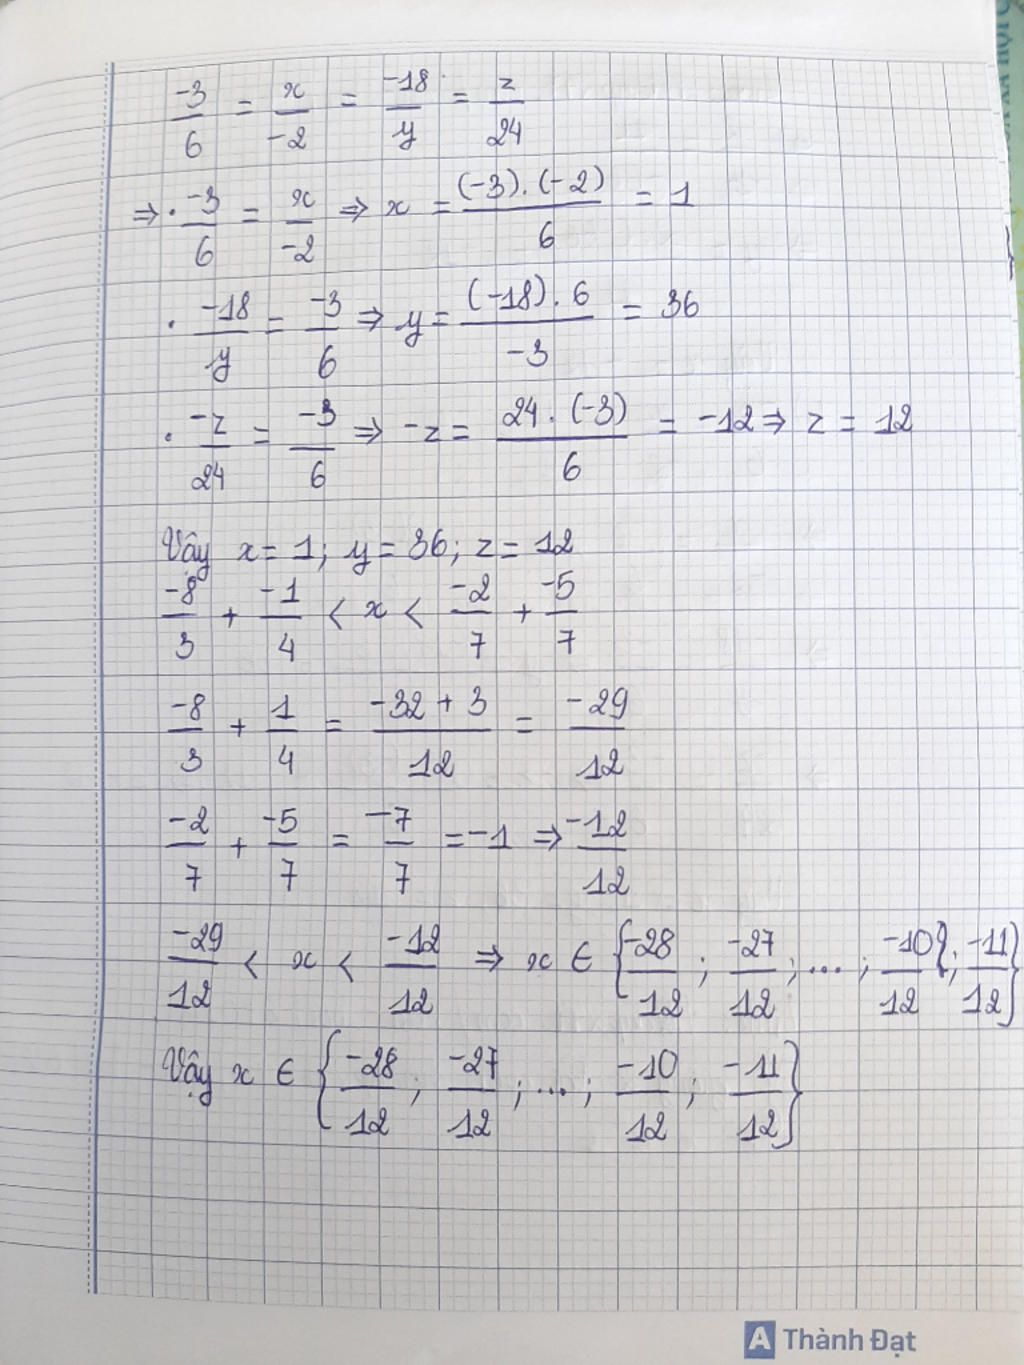 -3/6 = x/-2 = -18/y = z/24
⇒ · -3/6 = x/-2 ⇒ x = (-3).(-2)/6 = 1
· -18/y = -3/6 ⇒ y = (-18).6/-3 = 36
· -z/24 = -3/6 ⇒ -z = 24.(-3)/6 = -12 ⇒ z = 12
Vậy x = 1; y = 36; z = 12
-8/3 + -1/4 < x < -2/7 + -5/7
-8/3 + 1/4 = -32+3/12 = -29/12
-2/7 + -5/7 = -7/7 = -1 ⇒ -12/12
-29/12 < x < -12/12 ⇒ x ∈ {-28/12; -27/12; ...; -10/12}; -11/12}
Vậy x ∈ {-28/12; -27/12; ...; -10/12; -11/12}
A Thành Đạt